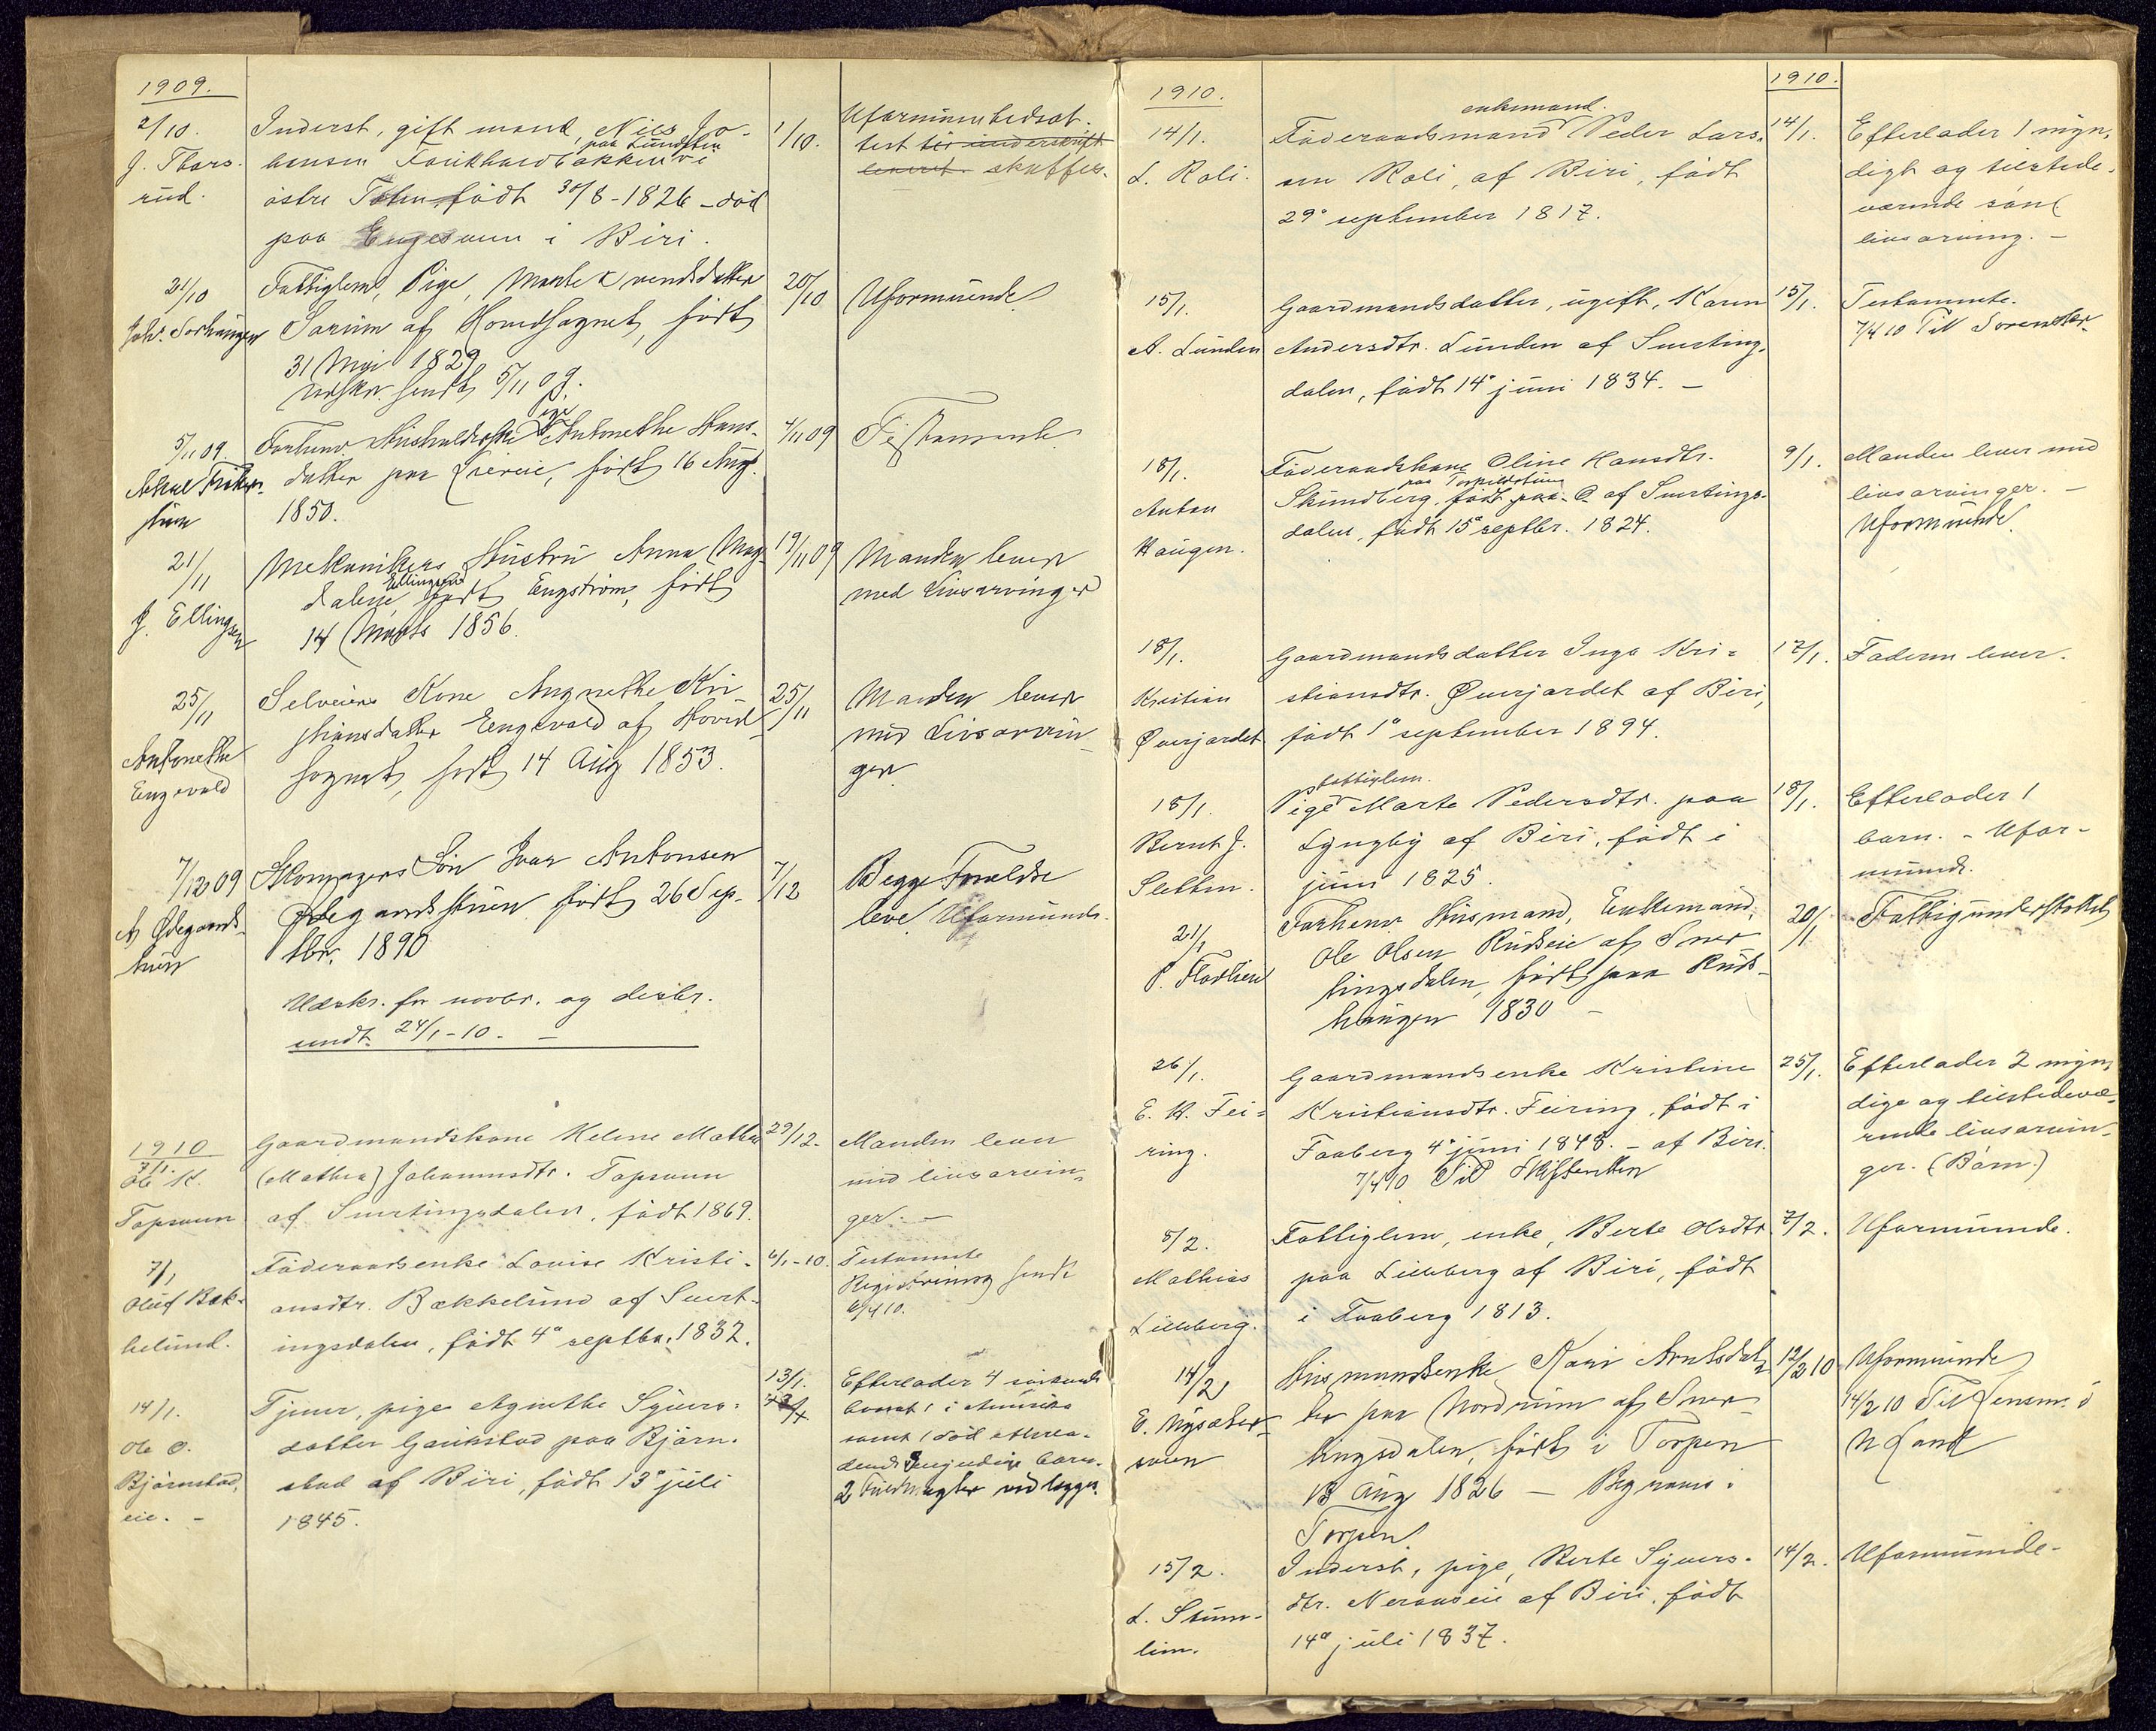 1909.
2/10.
J. Thors-
rud.
Inderst, gift mand, Nils Jo-
paa Lundsten
hansen Foukhaldbakken i
østre Toten, født 30/8-1826 - død
paa Engesveen i Biri.
1/10.
Uformuenhedsat-
test til underskrift
leveret. skaffes.
21/10
Joh. Sorhaugen
Fattiglem, Pige, Marte Evendsdatter
Sarum af Hovedsognet, født
31 Mai 1829
Indskr. sendt 5/11 09.
20/10
Uformuende
5/11 09.
Aksel Friker-
stuen
Forhenv. Husholderske Pige Antonethe Hans-
datter paa Liereie, født 16 Aug.
1850.
4/11 09
Testamente
21/11
J. Ellingsen
Mekanikers Hustru Anna Mag-
Ellingsen
dalene, født Engstrøm, født
14 Marts 1856.
19/11 09
Manden lever
med Livsarvinger
25/11
Antonethe
Engevold
Selveiers Kone Angnethe Kri-
stiansdatter Engevold af Hovid-
sognet, født 14 Aug 1853.
25/11
Manden lever
med Livsarvin-
ger
7/12 09
A Ødegaards-
stuen
Skomagers Søn Ivar Antonsen
Ødegaardsstuen født 26 Sep-
tbr. 1890
7/12
Begge Foreldre
leve. Uformuende.
Udskr. for novbr. og decbr.
sendt 24/1-10. -
1910
7/1.
Ole K.
Topsveen
Gaardmandskone Helene Mathea
(Mathea) Johannesdtr. Topsveen
af Snertingsdalen, født 1869.
29/12.
Manden lever
med livsarvin-
ger. -
7/1
Oluf Bæk-
kelund.
Føderaadsenke Lovise Kristi-
ansdtr. Bækkelund af Snert-
ingsdalen, født 4de septbr. 1832.
6/1-10.
Testamente
Registrering sendt
6/4 10.
14/1.
Ole O.
Bjørnstad-
eie. -
Tjener, pige Agnethe Syvers-
datter Gaukstad paa Bjørn-
stad af Biri, født 13de juli
1845.
13/1.
Efterlader 4 søskende
hvoraf 1 i Amerika
samt 1 død efterla-
dende 3 myndige barn.
2 Fuldmagter vedlegges.
1910.
14/1.
L. Roli.
enkemand.
Føderaadsmand Peder Lars-
sen Roli, af Biri, født
29de september 1817.
1910.
14/1.
Efterlader 1 myn-
digt og tilstede-
værende søn(
livsarving. -
15/1.
A. Lunden
Gaardmandsdatter, ugift, Karen
Andersdtr. Lunden af Snerting-
dalen, født 14de juni 1834. -
15/1.
Testamente.
7/4 10 Til Sorenskr.
18/1.
Anton
Haugen.
Føderaadskone Oline Hansdtr.
paa Torpeldstuen
Skundberg, født paa O. af Snertings-
dalen, født 15de septbr. 1824.
9/1.
Manden lever med
livsarvinger. -
Uformuende.
18/1.
Kristian
Øverjordet
Gaardmandsdatter Inga Kri-
stiansdtr. Øverjordet af Biri,
født 1de september 1894.
17/1.
Faderen lever.
18/1.
Bernt J.
Sletten.
fattiglem.
Pige Marte Pedersdtr. paa
Lyngby af Biri, født i
juni 1825.
18/1.
Efterlader 1
barn. - Ufor-
muende.
21/1
P. Flodlien
Forhenv. Husmand, Enkemand,
Ole Olsen Rudseie af Sner-
tingsdalen, født paa Ruds-
haugen 1830 -
20/1
Fattigunderstøttet
26/1.
E. H. Fei-
ring.
Gaardmandsenke Kristine
Kristiansdtr. Feiring, født i
Faaberg 4de juni 1848. - af Biri.
7/4 10 Til Skifteretten
25/1.
Efterlader 2 myn-
dige og tilstedevæ-
rende livsarvin-
ger. (Børn.)
8/2.
Mathias
Lilleberg.
Fattiglem, enke, Berte Olsdtr.
paa Lilleberg af Biri, født
i Faaberg 1813.
7/2.
Uformuende.
14/2
E. Nysæter-
sveen
Husmandsenke Kari Arntsdat-
ter paa Nordrum af Sner-
tingsdalen, født i Torpen
13 Aug 1826 - Begraves i
Torpen.
12/2 10
Uformuende
14/2 10 Til Lensm. i
N Land
15/2.
L. Stum-
lien.
Inderst, pige, Berte Syvers-
dtr. Neraaseie af Biri, født
14de juli 1837.
14/2.
Uformuende-